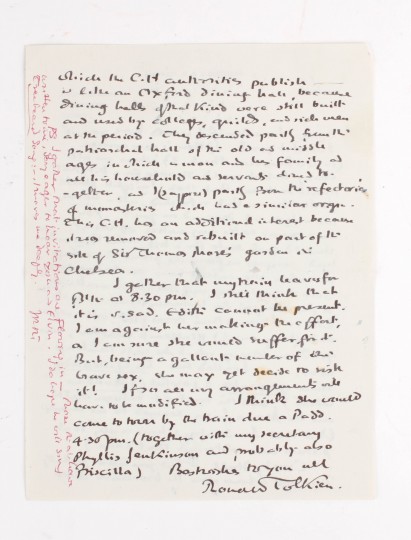 which the C.H authorities publish
is like an Oxford dining hall, because
dining halls of that kind were still built
and used by colleges, guilds, and rich men
at the period. They descended partly from the
patriarchal hall of the old and middle
ages in which a man and his family and
all his household and servants dined to-
gether, and partly from the refectories
of monasteries which had a similar origin.
This C.H. has an additional interest because
it was removed and rebuilt on part of the
site of Sir Thomas More's garden in
Chelsea.
I gather that my train leaves for
at 8.30 pm. I still think that
it is sad Edith cannot be present.
I am against her making the effort,
as I am sure she would suffer for it.
But, being a gallant member of the
brave sex, she may yet decide to risk
it! If so all my arrangements will
have to be modified. I think she would
come to town by the train due at Padd.
4.30 pm. (together with my secretary
Phyllis Jenkinson and probably also
Priscilla) Best wishes to you all
Ronald Tolkien.
PS I gather that invitations are flowing in